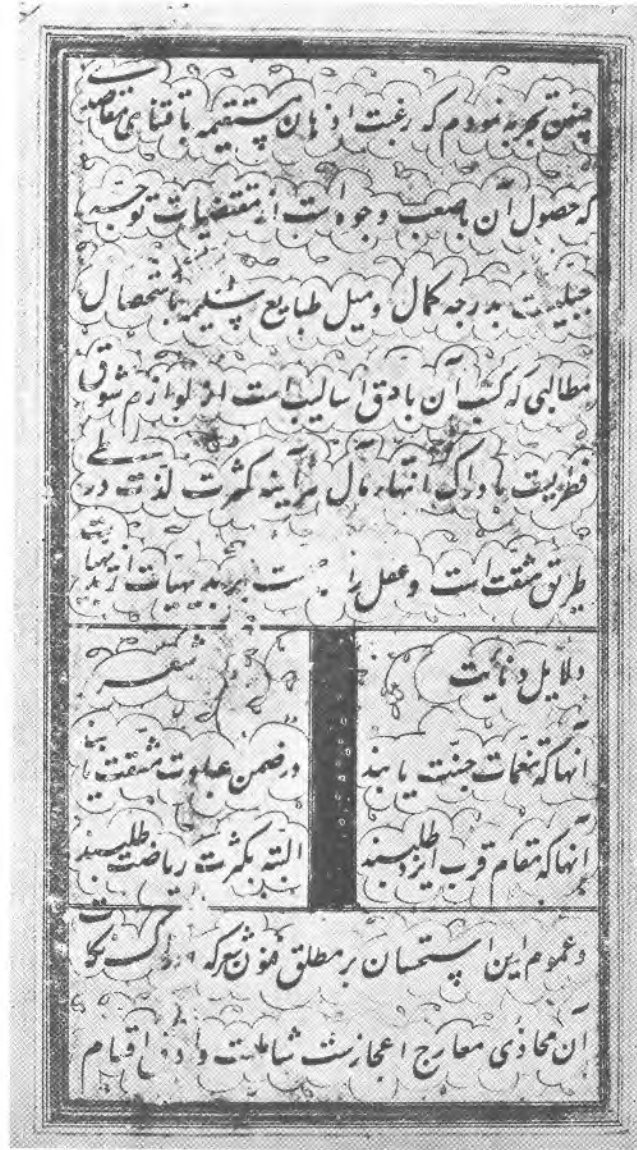 چنین تجربه نمودم که رغبت اذهان مستقیمه باقتنای مقاصدی
که حصول آن باصعب وجوه است از مقتضیات توجه
جبلیست بدرجه کمال و میل طبایع سلیمه باستحصال
مطالبی که کسب آن بادق اسالیب است از لوازم شوق
فطریست بادراک انتهاء مآل هرآینه کثرت لذت در طی
طریق مشقت است و عقل را بر بدیهیات ازین
دلایل دنائت
شعر
آنها که تنعمات جنت یابند
در ضمن عبادت مشقت یابند
آنها که مقام قرب ایزد طلبند
البته بکثرت ریاضت طلبند
و عموم این استحسان بر مطلق فنون شعر که ادراک نکات
آن محاذی معارج اعجازست شاملست و اقسام